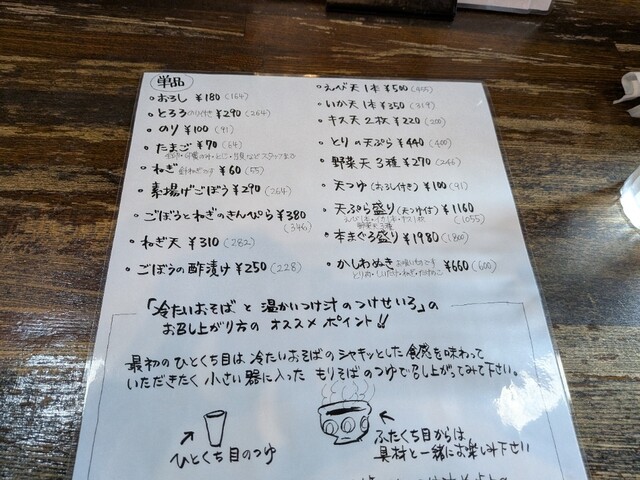 単品
・おろし ¥180(164)
・とろろ のり付き ¥290(264)
・のり ¥100(91)
・たまご ¥70(64)
・ねぎ ¥60(55)
・素揚げごぼう ¥290(264)
・ごぼうとねぎのきんぴら ¥380
(346)
・ねぎ天 ¥310(282)
・ごぼうの酢漬け ¥250(228)
・えび天1本 ¥500(455)
・いか天1本 ¥350(319)
・キス天2枚 ¥220(200)
・とりの天ぷら ¥440(400)
・野菜天3種 ¥270(246)
・天つゆ(おろし付き) ¥100(91)
・天ぷら盛り(天つゆ付) ¥1160
えび1本・いか1本・キス1枚
野菜天3種
(1055)
・本まぐろ盛り ¥1980(1800)
・かしわぬき お吸いものです ¥660(600)
とり肉・しいたけ・ねぎ・たけのこ
「冷たいおそばと温かいつけ汁のつけせいろ」の
お召し上がり方のオススメポイント!!
最初のひとくち目は冷たいおそばのシャキッとした食感を味わって
いただきたく小さい器に入ったもりそばのつゆで召し上がってみて下さい。
ひとくち目のつゆ
ふたくち目からは
具材と一緒にお楽しみ下さい